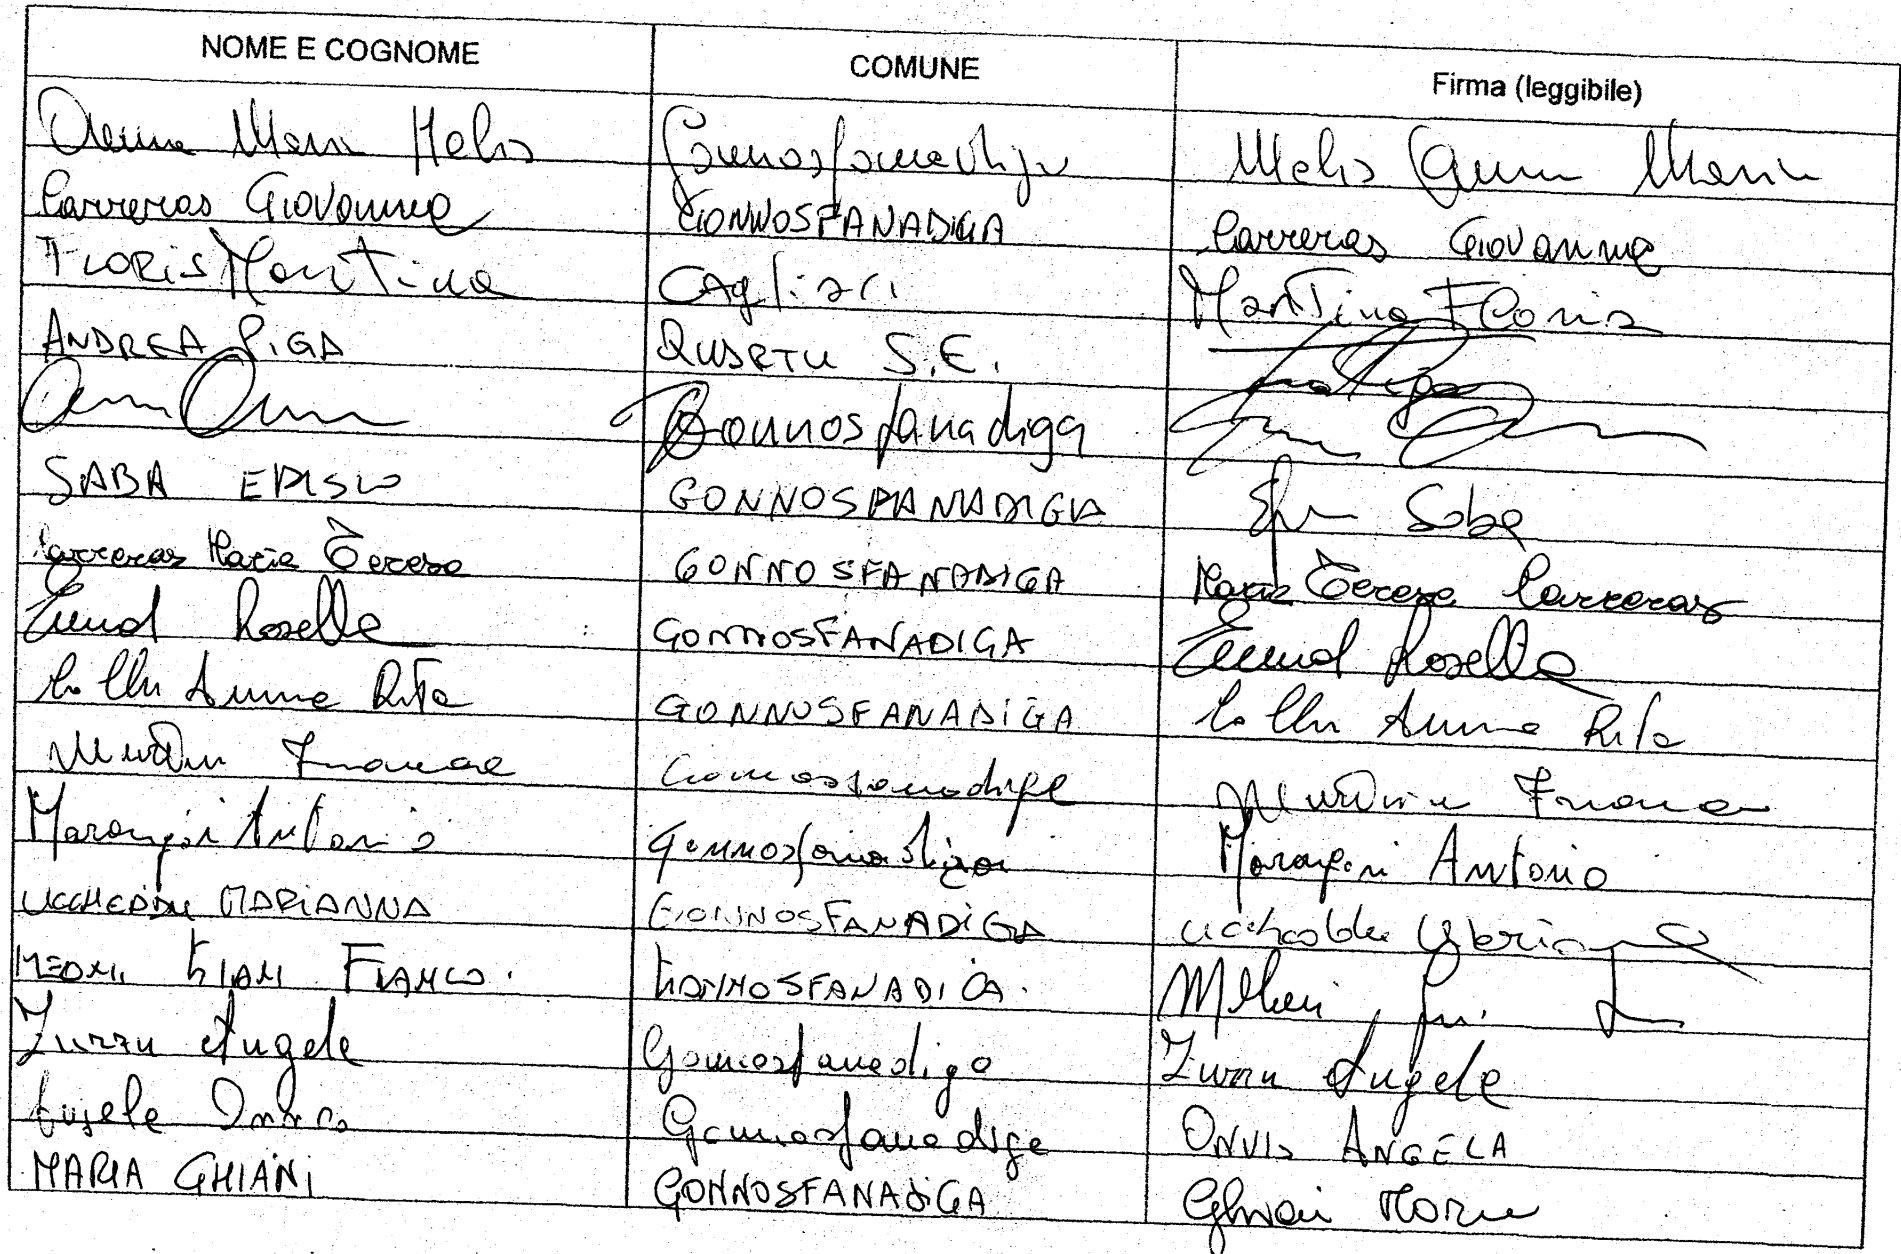 NOME E COGNOME COMUNE Firma (leggibile)
Maria Melis Gonnosfanadiga Melis Maria
Carreras Giovanna GONNOSFANADIGA Carreras Giovanna
FLORIS Martina Cagliari Martina Floris
ANDREA PIGA QUARTU S.E.
Gonnosfanadiga
SABA EFISIO GONNOSFANADIGA Saba
Carreras Maria Teresa GONNOSFANADIGA Maria Teresa Carreras
Rosella GONNOSFANADIGA Rosella
Collu Anna Rita GONNOSFANADIGA Collu Anna Rita
Gonnosfanadiga
Antonio Gonnosfanadiga Antonio
UCCHEDDU MARIANNA GONNOSFANADIGA Uccheddu
GIAN FRANCO. GONNOSFANADIGA.
Zurru Angela Gonnosfanadiga Zurru Angela
Angela Gonnosfanadiga ANGELA
MARIA GHIANI GONNOSFANADIGA Ghiani Maria